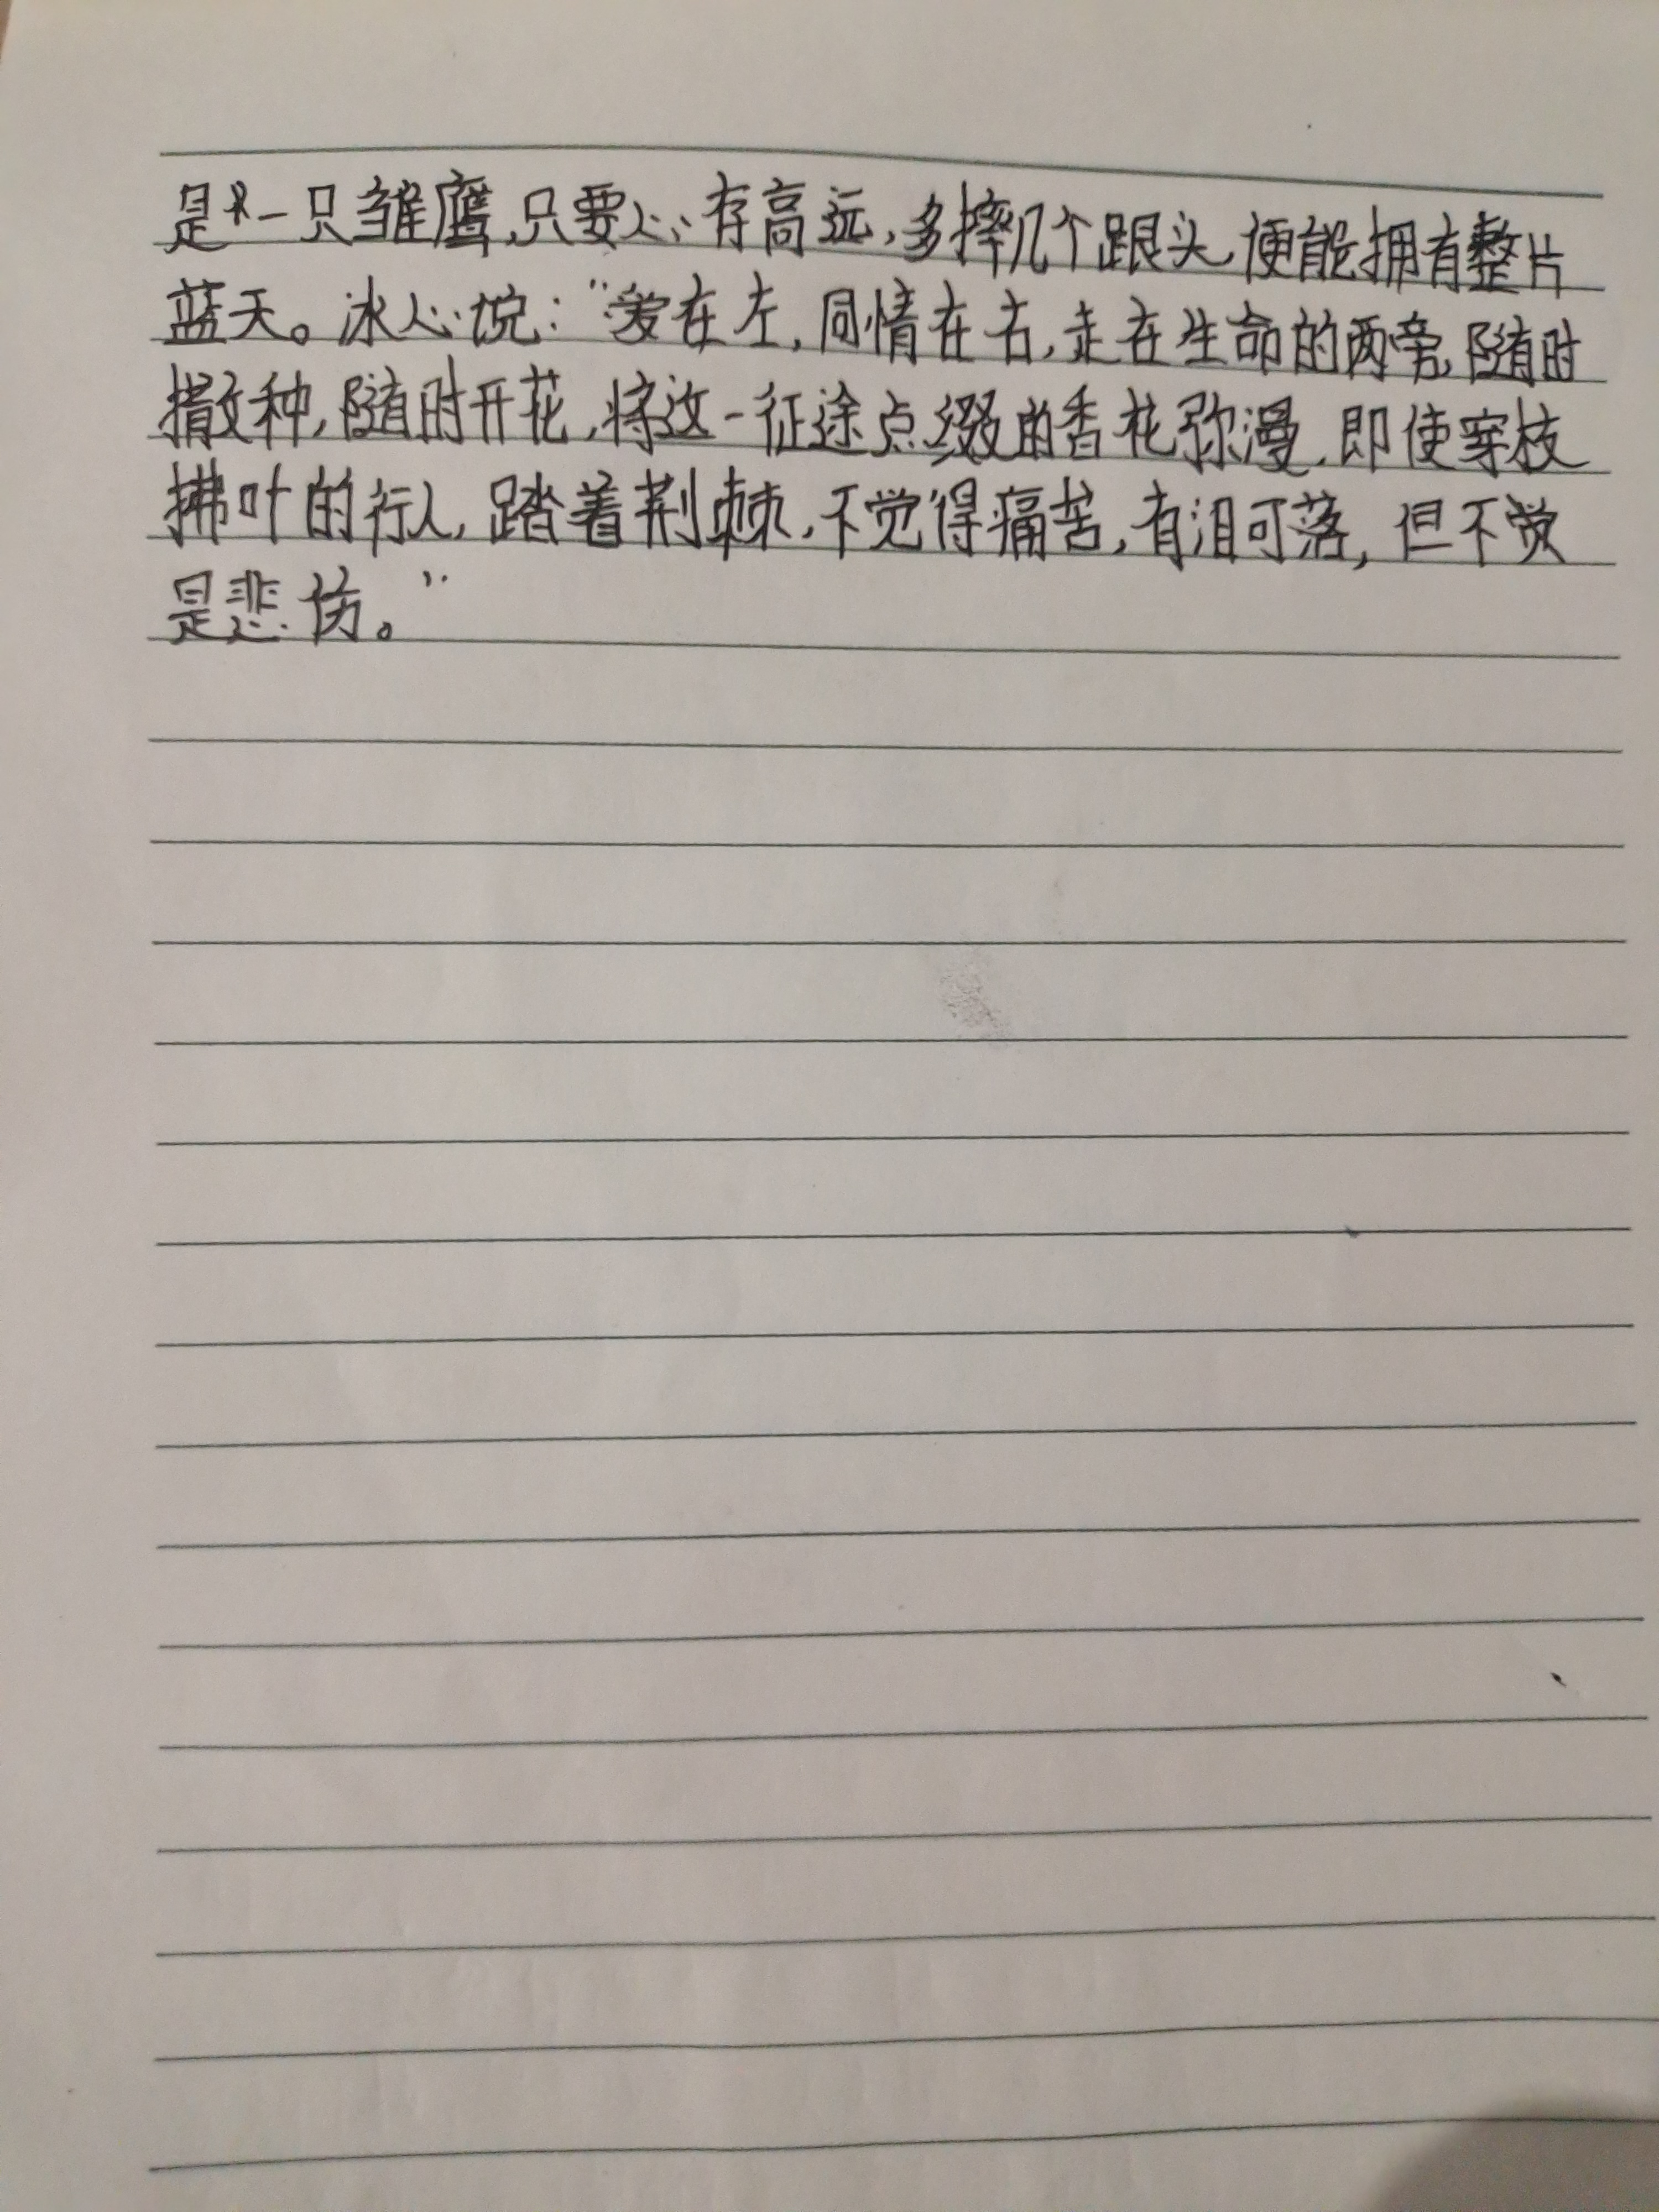 是一只雏鹰,只要心存高远,多摔几个跟头,便能拥有整片
蓝天。冰心说:"爱在左,同情在右,走在生命的两旁,随时
撒种,随时开花,将这一征途点缀的香花弥漫,即使穿枝
拂叶的行人,踏着荆棘,不觉得痛苦,有泪可落,但不觉
是悲伤。"